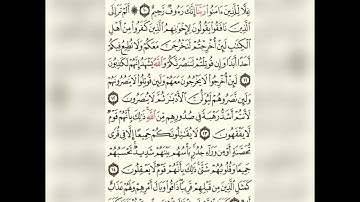 غِلًّا لِّلَّذِينَ ءَامَنُوا۟ رَبَّنَآ إِنَّكَ رَءُوفٌ رَّحِيمٌ ۝١٠ ۞ أَلَمْ تَرَ إِلَى
ٱلَّذِينَ نَافَقُوا۟ يَقُولُونَ لِإِخْوَٰنِهِمُ ٱلَّذِينَ كَفَرُوا۟ مِنْ أَهْلِ
ٱلْكِتَٰبِ لَئِنْ أُخْرِجْتُمْ لَنَخْرُجَنَّ مَعَكُمْ وَلَا نُطِيعُ فِيكُمْ
أَحَدًا أَبَدًا وَإِن قُوتِلْتُمْ لَنَنصُرَنَّكُمْ وَٱللَّهُ يَشْهَدُ إِنَّهُمْ لَكَٰذِبُونَ
۝١١ لَئِنْ أُخْرِجُوا۟ لَا يَخْرُجُونَ مَعَهُمْ وَلَئِن قُوتِلُوا۟ لَا يَنصُرُونَهُمْ
وَلَئِن نَّصَرُوهُمْ لَيُوَلُّنَّ ٱلْأَدْبَٰرَ ثُمَّ لَا يُنصَرُونَ ۝١٢
لَأَنتُمْ أَشَدُّ رَهْبَةً فِى صُدُورِهِم مِّنَ ٱللَّهِ ذَٰلِكَ بِأَنَّهُمْ قَوْمٌ
لَّا يَفْقَهُونَ ۝١٣ لَا يُقَٰتِلُونَكُمْ جَمِيعًا إِلَّا فِى قُرًى
مُّحَصَّنَةٍ أَوْ مِن وَرَآءِ جُدُرٍۭ بَأْسُهُم بَيْنَهُمْ شَدِيدٌ تَحْسَبُهُمْ
جَمِيعًا وَقُلُوبُهُمْ شَتَّىٰ ذَٰلِكَ بِأَنَّهُمْ قَوْمٌ لَّا يَعْقِلُونَ ۝١٤
كَمَثَلِ ٱلَّذِينَ مِن قَبْلِهِمْ قَرِيبًا ذَاقُوا۟ وَبَالَ أَمْرِهِمْ وَلَهُمْ عَذَابٌ